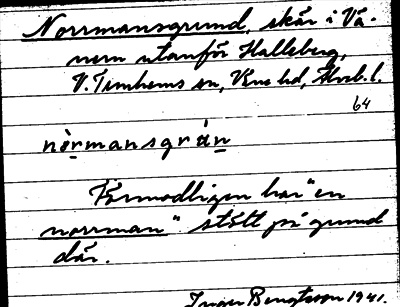 Norrmansgrund, skär i Vä-
nern utanför Halleberg,
V. Tunhems sn, Väne hd, Älvsb. l.
64
nòrmansgrún
Förmodligen har "en
norrman" stött på grund
där.
Inger Bengtsson 1941.